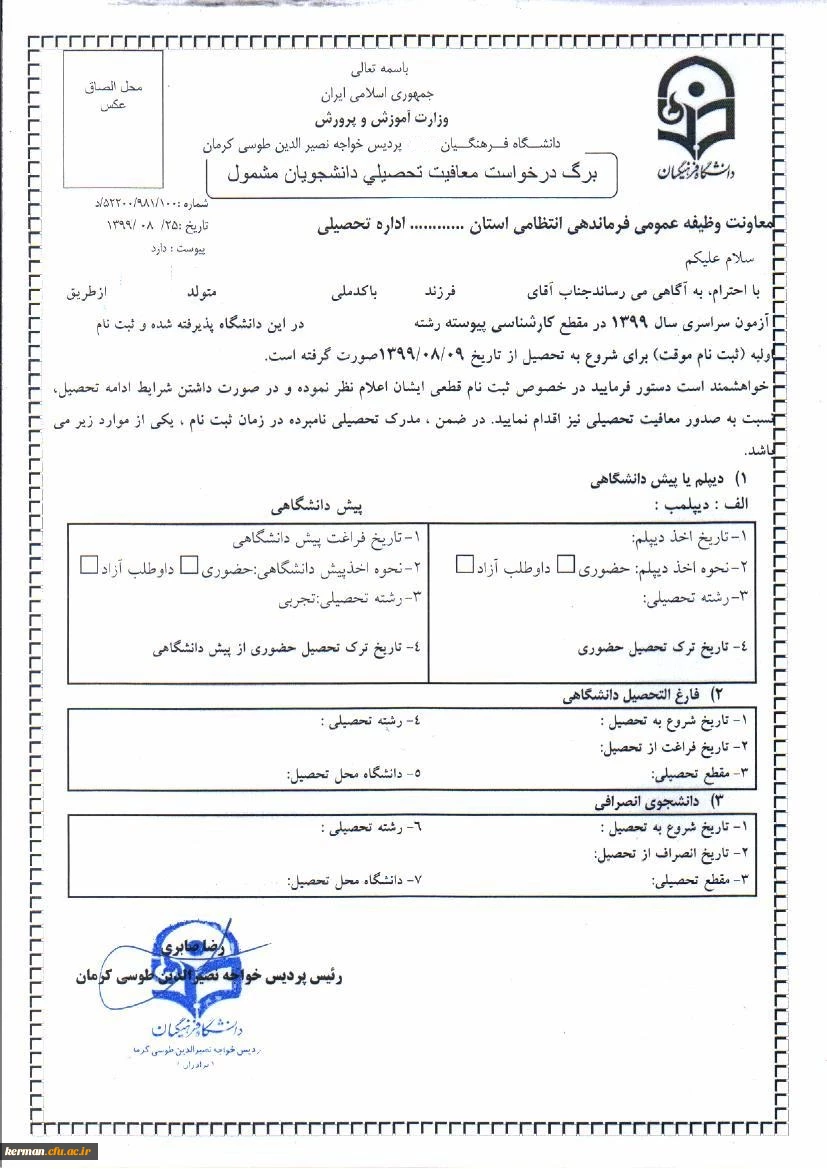 محل الصاق
عکس
باسمه تعالی
جمهوری اسلامی ایران
وزارت آموزش و پرورش
دانشگاه فرهنگیان پردیس خواجه نصیر الدین طوسی کرمان
دانشگاه فرهنگیان
برگ درخواست معافیت تحصیلي دانشجویان مشمول
شماره :۵۲۲۰۰/۹۸۱/۱۰۰/د
تاریخ :۲۵/ ۰۸ /۱۳۹۹
پیوست : دارد
معاونت وظیفه عمومی فرماندهی انتظامی استان ............ اداره تحصیلی
سلام علیکم
با احترام، به آگاهی می رساندجناب آقای فرزند باکدملی متولد ازطریق
آزمون سراسری سال ۱۳۹۹ در مقطع کارشناسی پیوسته رشته در این دانشگاه پذیرفته شده و ثبت نام
اولیه (ثبت نام موقت) برای شروع به تحصیل از تاریخ ۱۳۹۹/۰۸/۰۹صورت گرفته است.
خواهشمند است دستور فرمایید در خصوص ثبت نام قطعی ایشان اعلام نظر نموده و در صورت داشتن شرایط ادامه تحصیل،
نسبت به صدور معافیت تحصیلی نیز اقدام نمایید. در ضمن ، مدرک تحصیلی نامبرده در زمان ثبت نام ، یکی از موارد زیر می
باشد.
۱) دیپلم یا پیش دانشگاهی
الف : دیپلمب : پیش دانشگاهی
۱-تاریخ اخذ دیپلم:
۲-نحوه اخذ دیپلم: حضوری☐ داوطلب آزاد☐
۳-رشته تحصیلی:
۴- تاریخ ترک تحصیل حضوری
۱-تاریخ فراغت پیش دانشگاهی
۲-نحوه اخذپیش دانشگاهی:حضوری☐ داوطلب آزاد☐
۳-رشته تحصیلی:تجربی
۴- تاریخ ترک تحصیل حضوری از پیش دانشگاهی
۲) فارغ التحصیل دانشگاهی
۱- تاریخ شروع به تحصیل : ۴- رشته تحصیلی :
۲- تاریخ فراغت از تحصیل:
۳- مقطع تحصیلی: ۵- دانشگاه محل تحصیل:
۳) دانشجوی انصرافی
۱- تاریخ شروع به تحصیل : ۶- رشته تحصیلی :
۲- تاریخ انصراف از تحصیل:
۳- مقطع تحصیلی: ۷- دانشگاه محل تحصیل:
رضا صابری
رئیس پردیس خواجه نصیرالدین طوسی کرمان
دانشگاه فرهنگیان
ردیس خواجه نصیرالدین طوسی کرما
(برادران)
kerman.cfu.ac.ir